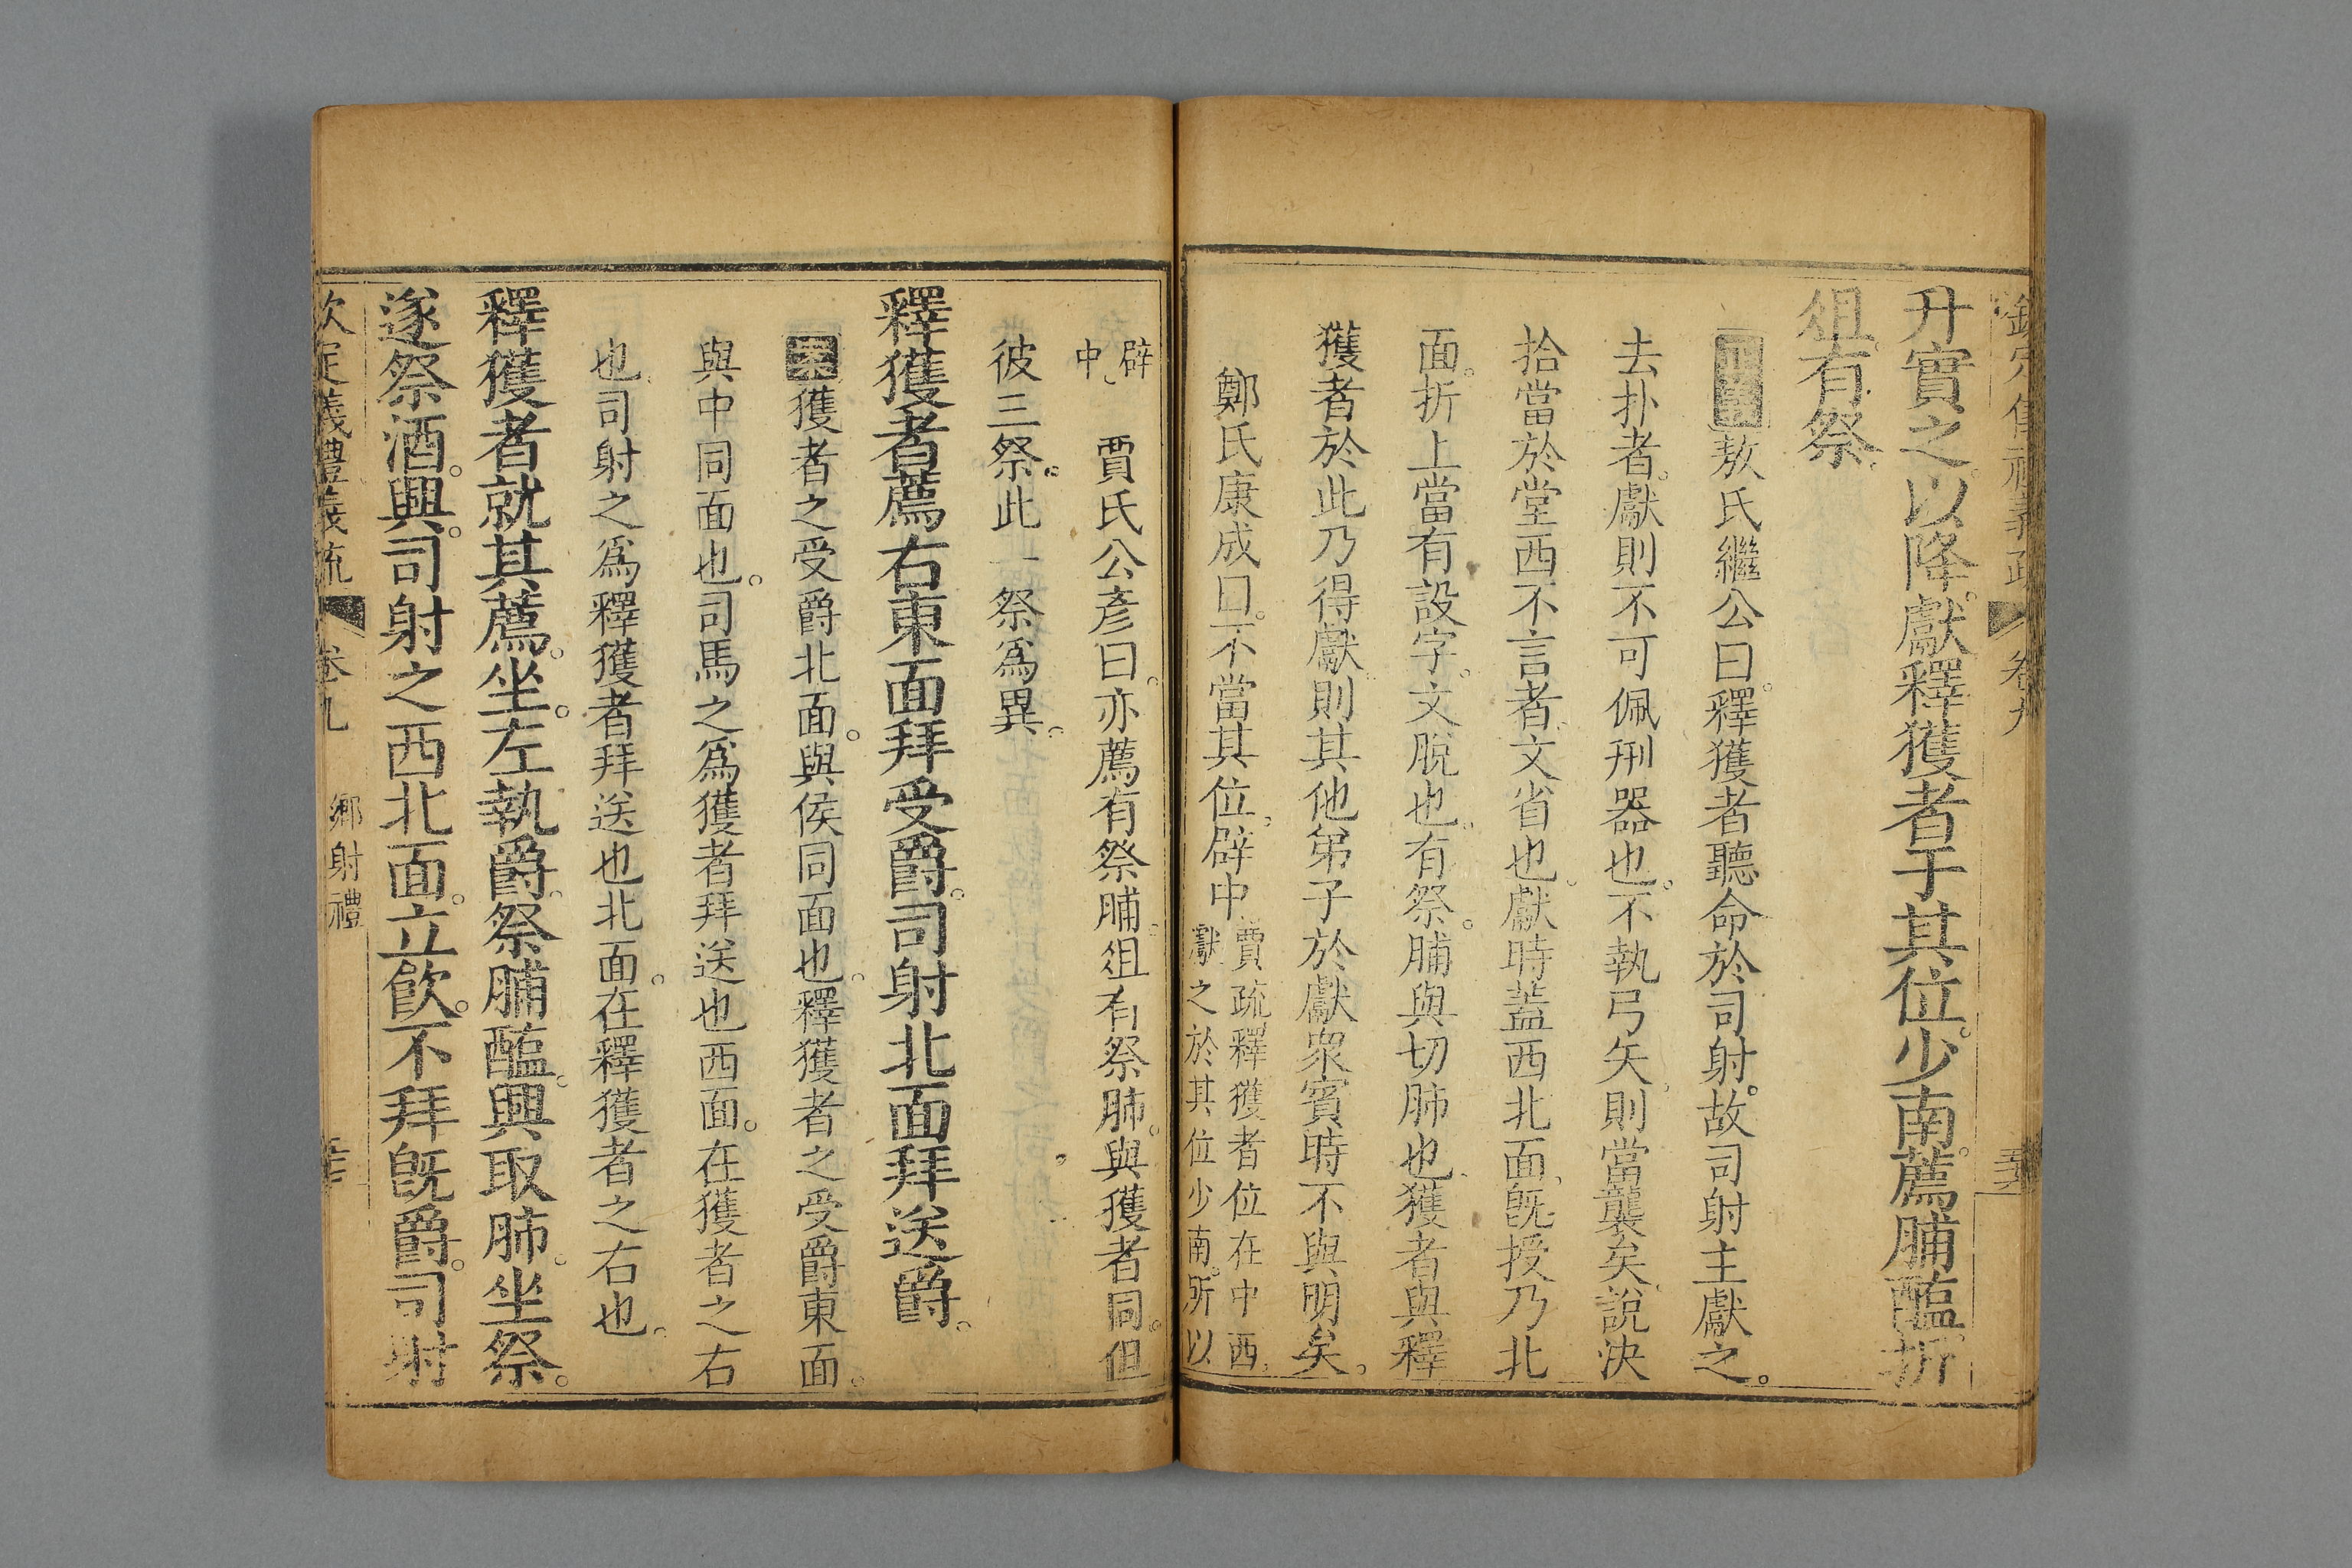 欽定儀禮義疏 卷九
升實之以降獻釋獲者于其位少南薦脯醢折
俎有祭
正義敖氏繼公曰釋獲者聽命於司射故司射主獻之
去扑者獻則不可佩刑器也不執弓矢則當襲矣說決
拾當於堂西不言者文省也獻時蓋西北面既授乃北
面折上當有設字文脫也有祭脯與切肺也獲者與釋
獲者於此乃得獻則其他弟子於獻衆賓時不與明矣
鄭氏康成曰不當其位辟中
賈疏釋獲者位在中西
獻之於其位少南所以
辟
中
賈氏公彥曰亦薦有祭脯俎有祭肺與獲者同但
彼三祭此一祭爲異
釋獲者薦右東面拜受爵司射北面拜送爵
案獲者之受爵北面與侯同面也釋獲者之受爵東面
與中同面也司馬之爲獲者拜送也西面在獲者之右
也司射之爲釋獲者拜送也北面在釋獲者之右也
釋獲者就其薦坐左執爵祭脯醢興取肺坐祭
遂祭酒興司射之西北面立飲不拜既爵司射
欽定儀禮義疏 卷九 鄉射禮